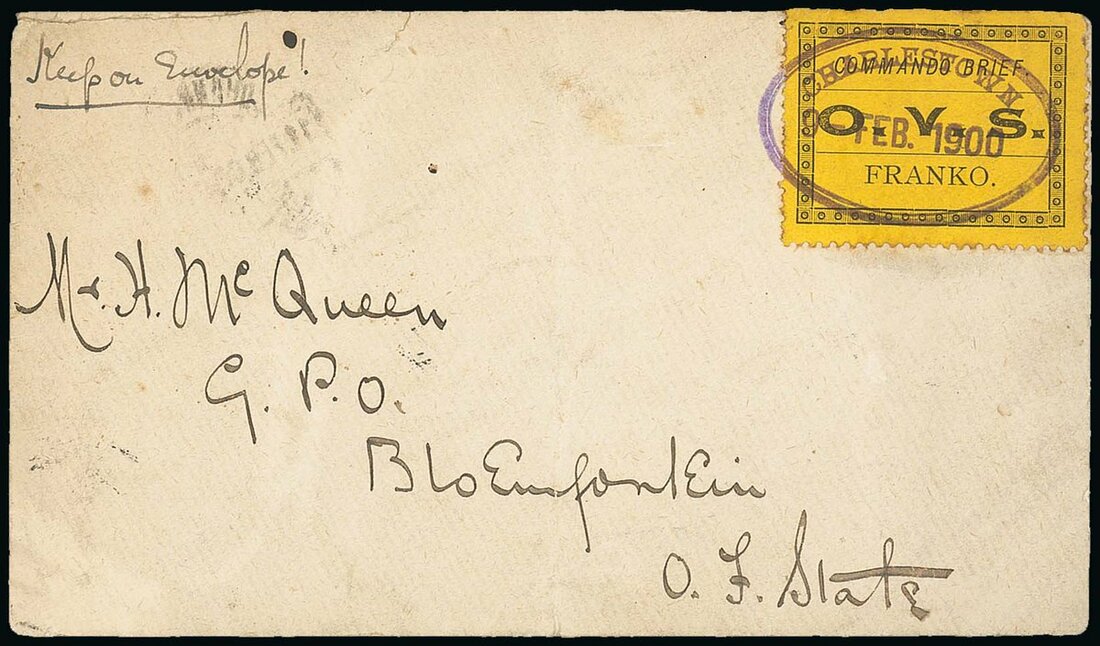 Keep on Envelope!
COMMANDO BRIEF.
O. V. S.
FRANKO.
CHARLESTOWN
FEB. 1900
Mr. H. McQueen
G. P. O.
Bloemfontein
O. F. State